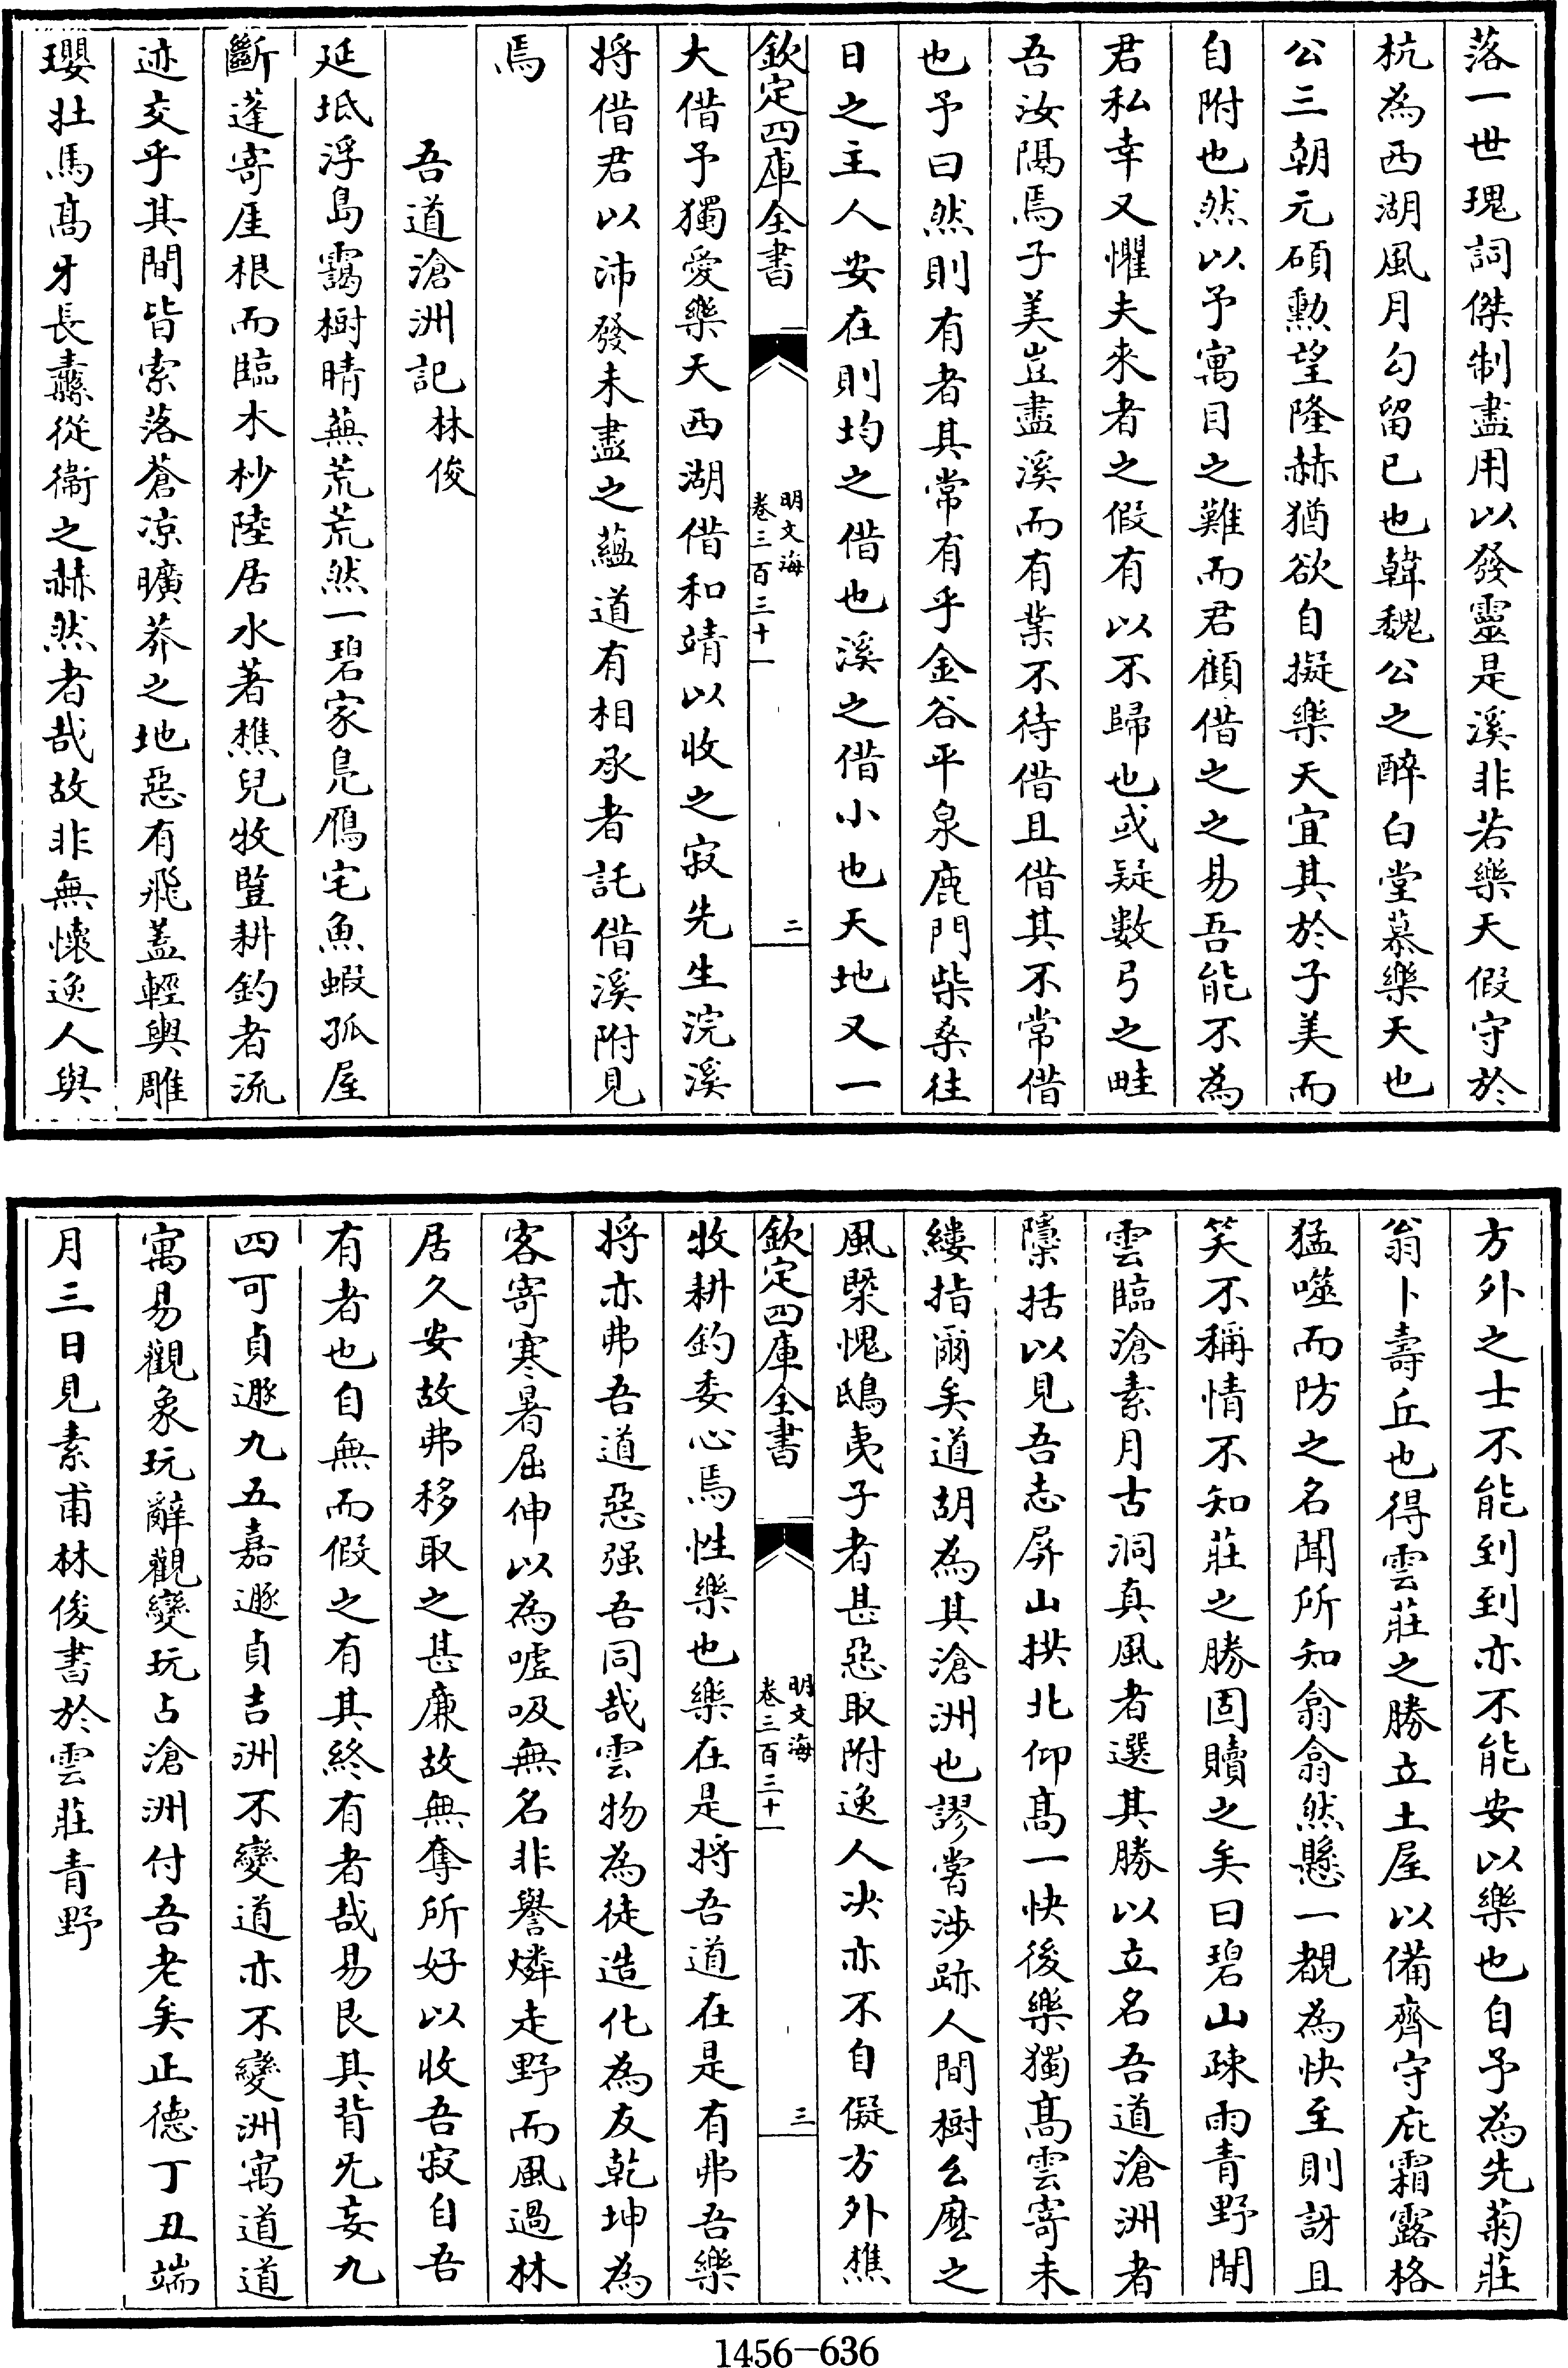 落一世瑰詞傑制盡用以發靈是溪非若樂天假守於
杭為西湖風月勾留已也韓魏公之醉白堂慕樂天也
公三朝元碩勳望隆赫猶欲自擬樂天宜其於子美而
自附也然以予寓目之難而君顧借之之易吾能不為
君私幸又懼夫來者之假有以不歸也或疑數弓之畦
吾汝隔焉子美豈盡溪而有業不待借且借其不常借
也予曰然則有者其常有乎金谷平泉鹿門柴桑往
日之主人安在則均之借也溪之借小也天地又一
欽定四庫全書
明文海
卷三百三十一
二
大借予獨愛樂天西湖借和靖以收之寂先生浣溪
将借君以沛發未盡之蘊道有相承者託借溪附見
焉
吾道滄洲記 林俊
延坻浮島靄樹晴蕪荒荒然一碧家鳧鴈宅魚蝦孤屋
斷蓬寄厓根而臨木杪陸居水著樵兒牧豎耕釣者流
迹交乎其間皆索落蒼凉曠莽之地惡有飛蓋輕輿雕
瓔壯馬髙牙長纛從衞之赫然者哉故非無懷逸人與
方外之士不能到到亦不能安以樂也自予為先菊莊
翁卜壽丘也得雲莊之勝立土屋以備齊守庇霜露格
猛噬而防之名聞所知翕翕然懸一覩為快至則訝且
笑不稱情不知莊之勝固贖之矣曰碧山疎雨青野閒
雲臨滄素月古洞真風者選其勝以立名吾道滄洲者
隱括以見吾志屏山拱北仰髙一快後樂獨髙雲寄未
縷指爾矣道胡為其滄洲也謬嘗涉跡人間樹么麽之
風槩愧鴟夷子者甚惡取附逸人决亦不自儗方外樵
欽定四庫全書
明文海
卷三百三十一
三
牧耕釣委心焉性樂也樂在是将吾道在是有弗吾樂
将亦弗吾道惡强吾同哉雲物為徒造化為友乾坤為
客寄寒暑屈伸以為噓吸無名非譽燐走野而風過林
居久安故弗移取之甚廉故無奪所好以收吾寂自吾
有者也自無而假之有其終有者哉易艮其背旡妄九
四可貞遯九五嘉遯貞吉洲不變道亦不變洲寓道道
寓易觀象玩辭觀變玩占滄洲付吾老矣正德丁丑端
月三日見素甫林俊書於雲莊青野
1456-636